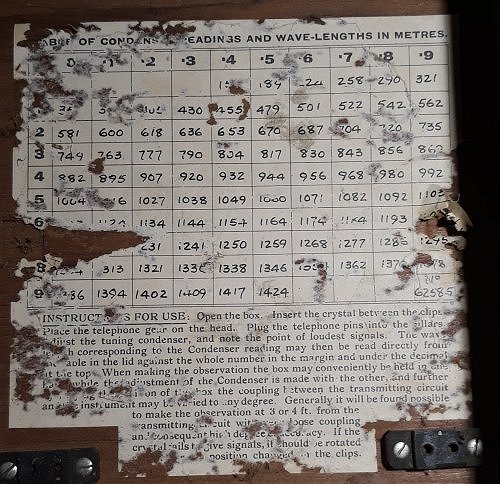 TABLE OF CONDENSER READINGS AND WAVE-LENGTHS IN METRES.
·2 ·3 ·4 ·5 ·6 ·7 ·8 ·9
189 224 258 290 321
430 455 479 501 522 542 562
2 581 600 618 636 653 670 687 704 720 735
3 749 763 777 790 804 817 830 843 856 869
4 882 895 907 920 932 944 956 968 980 992
5 1004 1027 1038 1049 1060 1071 1082 1092 1103
6 1134 1144 1154 1164 1174 1184 1193
1241 1250 1259 1268 1277 1286 1295
8 1321 1330 1338 1346 1362
9 1394 1402 1409 1417 1424 No 62585
INSTRUCTIONS FOR USE: Open the box. Insert the crystal between the clips.
Place the telephone gear on the head. Plug the telephone pins into the pillars.
Adjust the tuning condenser, and note the point of loudest signals. The wave
corresponding to the Condenser reading may then be read directly from
the table in the lid against the whole number in the margin and under the decimal
at the top. When making the observation the box may conveniently be held in one
while the adjustment of the Condenser is made with the other, and further
of the box the coupling between the transmitting circuit
and the instrument may be varied to any degree. Generally it will be found possible
to make the observation at 3 or 4 ft. from the
transmitting circuit with very loose coupling
and consequent high degree of accuracy. If the
crystal fails to give signals, it should be rotated
position changed in the clips.